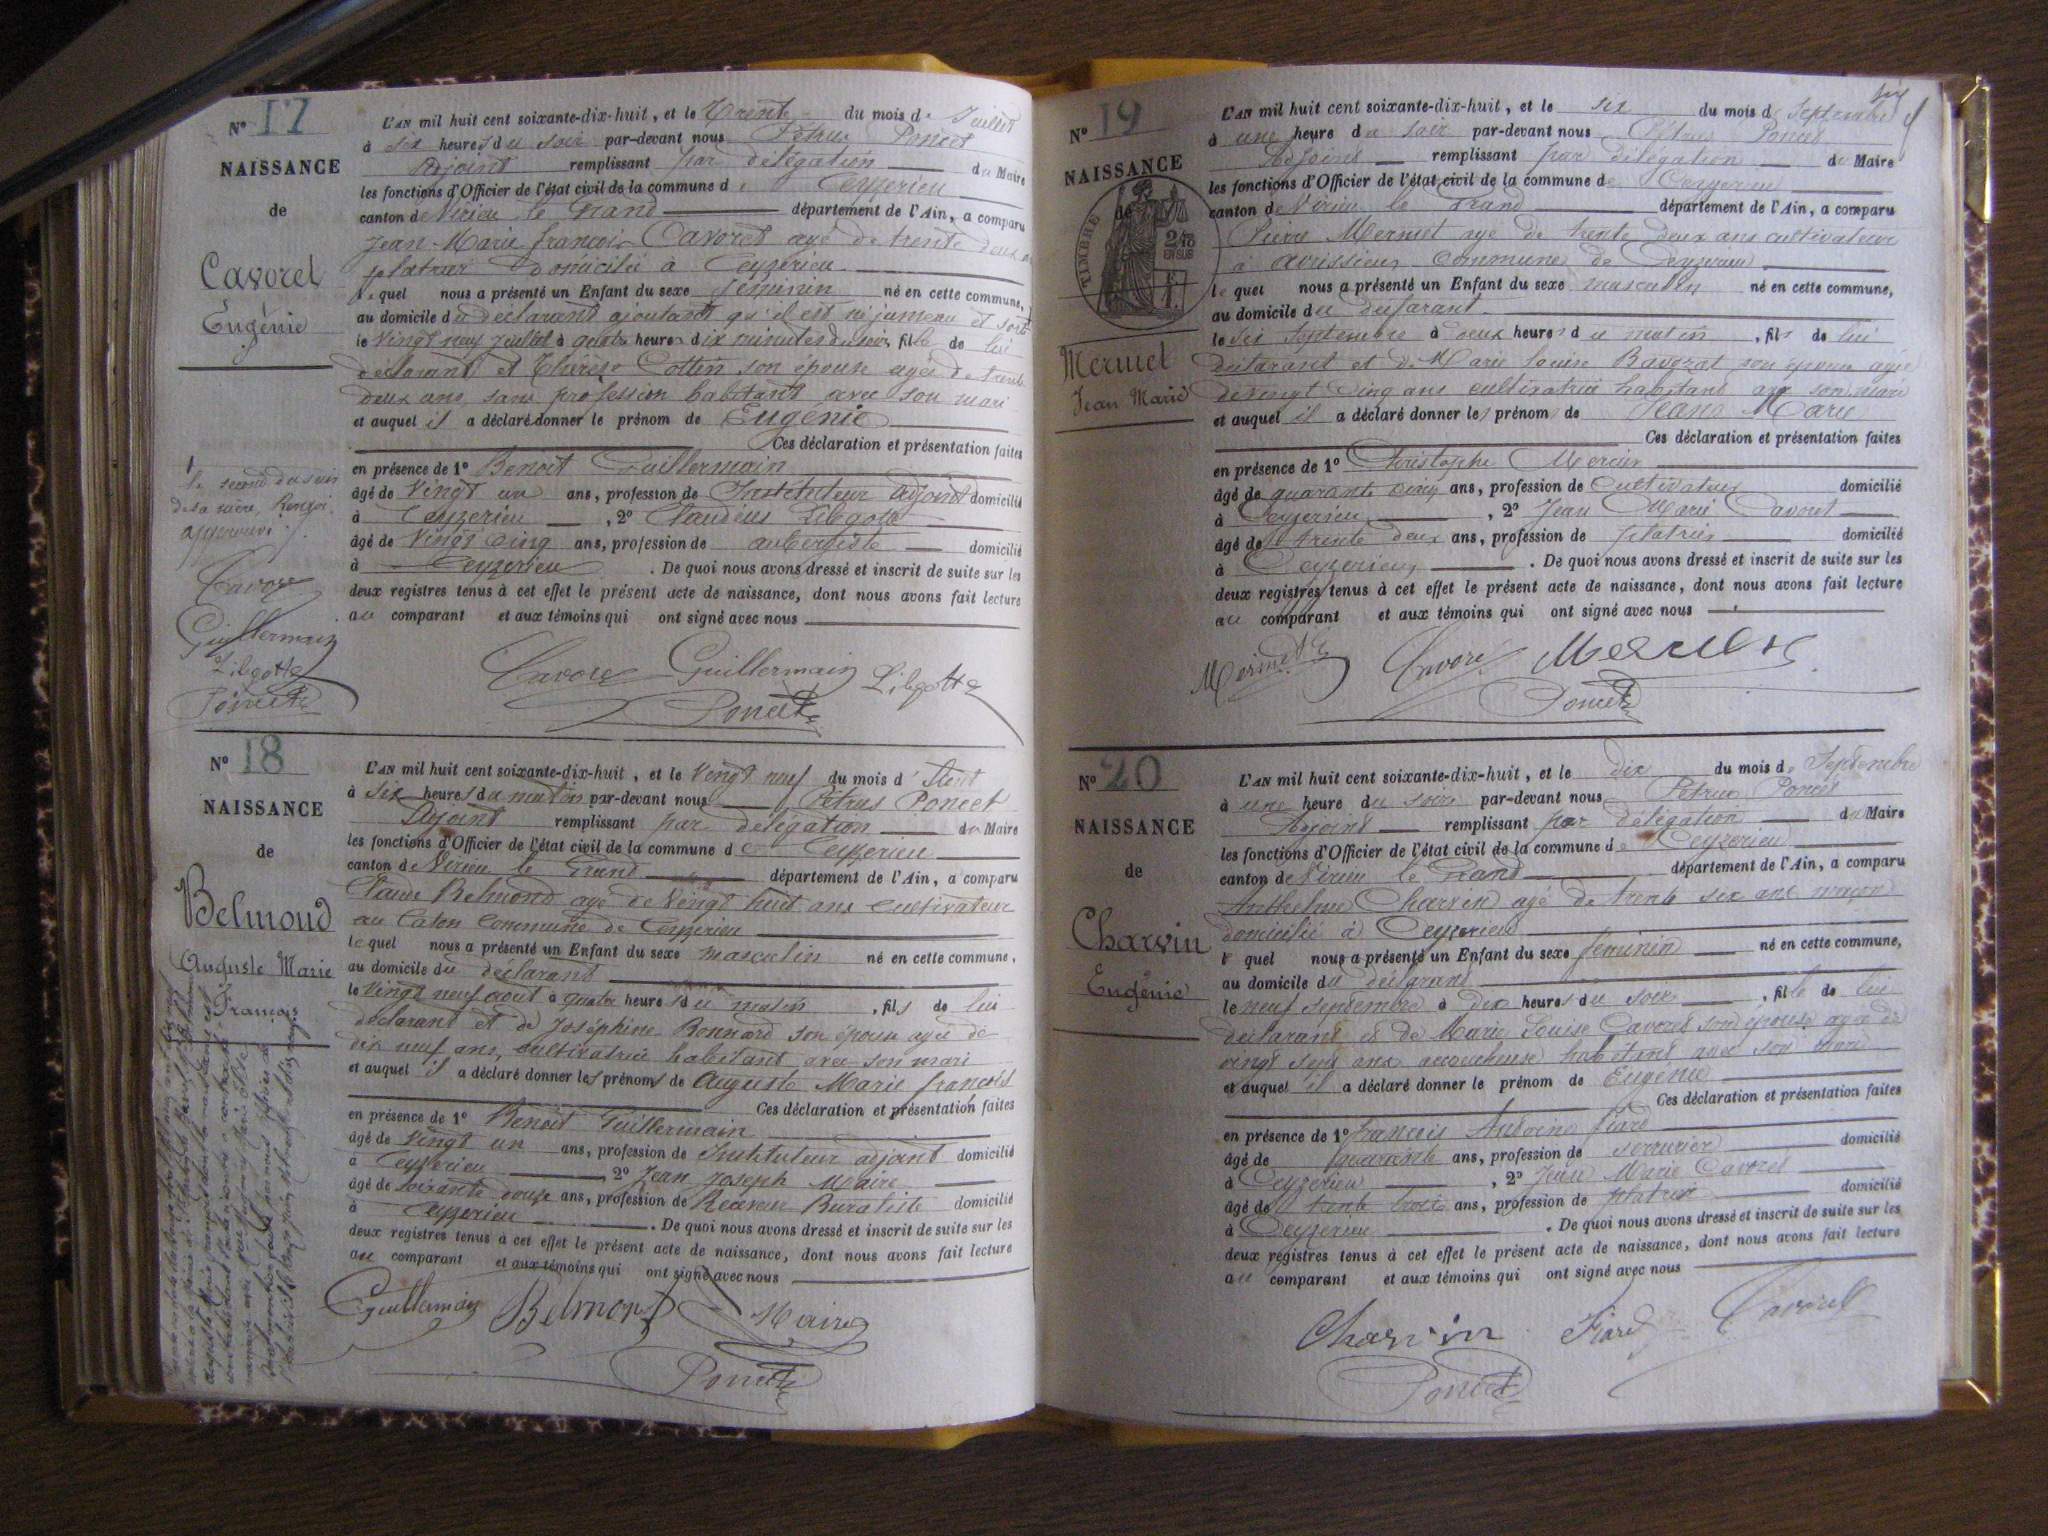 Nº 17
NAISSANCE
de
Cavoret
Eugénie
L'AN mil huit cent soixante-dix-huit, et le Trente du mois de Juillet
à six heures du soir par-devant nous Pétrus Poncet
Adjoint remplissant par délégation du Maire
les fonctions d'Officier de l'état civil de la commune de Ceyzerieu
canton de Virieu le Grand département de l'Ain, a comparu
Jean-Marie françois Cavoret agé de trente deux ans
platrier domicilié à Ceyzerieu
lequel nous a présenté un Enfant du sexe féminin né en cette commune,
au domicile du déclarant ajoutant qu'il est né jumeau et sorti
le Vingt neuf juillet à quatre heures dix minutes du soir, fille de lui
déclarant et Thérèse Cottin son épouse agée de trente
deux ans, sans profession habitant avec son mari
et auquel il a déclaré donner le prénom de Eugénie
Ces déclaration et présentation faites
en présence de 1º Benoit Guillermain
âgé de Vingt un ans, profession de Instituteur adjoint domicilié
à Ceyzerieu, 2º Claudius Libgotte
âgé de Vingt cinq ans, profession de aubergiste domicilié
à Ceyzerieu. De quoi nous avons dressé et inscrit de suite sur les
deux registres tenus à cet effet le présent acte de naissance, dont nous avons fait lecture
au comparant et aux témoins qui ont signé avec nous
le second du sein
de sa mère, Renvoi
approuvé
Cavoret
Guillermain
Libgotte
Poncet
Cavoret Guillermain Libgotte
Poncet
Nº 18
NAISSANCE
de
Belmond
Auguste Marie
François
L'AN mil huit cent soixante-dix-huit, et le Vingt neuf du mois d'Août
à Six heures du matin par-devant nous Pétrus Poncet
Adjoint remplissant par délégation du Maire
les fonctions d'Officier de l'état civil de la commune de Ceyzerieu
canton de Virieu le Grand département de l'Ain, a comparu
Claude Belmond agé de Vingt huit ans Cultivateur
au Caton Commune de Ceyzerieu
lequel nous a présenté un Enfant du sexe masculin né en cette commune,
au domicile du déclarant
le Vingt neuf août à quatre heures du matin, fils de lui
déclarant et de Joséphine Bonnard son épouse agée de
dix neuf ans, cultivatrice habitant avec son mari
et auquel il a déclaré donner les prénoms de Auguste Marie françois
Ces déclaration et présentation faites
en présence de 1º Benoit Guillermain
âgé de Vingt un ans, profession de Instituteur adjoint domicilié
à Ceyzerieu, 2º Jean Joseph Maire
âgé de soixante douze ans, profession de Receveur Buraliste domicilié
à Ceyzerieu. De quoi nous avons dressé et inscrit de suite sur les
deux registres tenus à cet effet le présent acte de naissance, dont nous avons fait lecture
au comparant et aux témoins qui ont signé avec nous
Guillermain Belmond Maire
Poncet
Nº 19
NAISSANCE
de
TIMBRE
Mermet
Jean Marie
L'AN mil huit cent soixante-dix-huit, et le six du mois de Septembre
à une heure du soir par-devant nous Pétrus Poncet
Adjoint remplissant par délégation du Maire
les fonctions d'Officier de l'état civil de la commune de Ceyzerieu
canton de Virieu le Grand département de l'Ain, a comparu
Pierre Mermet agé de trente deux ans cultivateur
à avrissieu Commune de Ceyzerieu
lequel nous a présenté un Enfant du sexe masculin né en cette commune,
au domicile du déclarant
le Six Septembre à deux heures du matin, fils de lui
déclarant et de Marie Louise Ravozat son épouse agée
de vingt cinq ans cultivatrice habitant avec son mari
et auquel il a déclaré donner les prénoms de Jean Marie
Ces déclaration et présentation faites
en présence de 1º Christophe Mercier
âgé de quarante cinq ans, profession de Cultivateur domicilié
à Ceyzerieu, 2º Jean Marie Cavoret
âgé de trente deux ans, profession de platrier domicilié
à Ceyzerieu. De quoi nous avons dressé et inscrit de suite sur les
deux registres tenus à cet effet le présent acte de naissance, dont nous avons fait lecture
au comparant et aux témoins qui ont signé avec nous
Mermet Cavoret Mercier
Poncet
Nº 20
NAISSANCE
de
Charvin
Eugénie
L'AN mil huit cent soixante-dix-huit, et le dix du mois de Septembre
à une heure du soir par-devant nous Pétrus Poncet
Adjoint remplissant par délégation du Maire
les fonctions d'Officier de l'état civil de la commune de Ceyzerieu
canton de Virieu le Grand département de l'Ain, a comparu
Anthelme Charvin agé de trente six ans maçon
domicilié à Ceyzerieu
lequel nous a présenté un Enfant du sexe féminin né en cette commune,
au domicile du déclarant
le neuf septembre à dix heures du soir, fille de lui
déclarant et de Marie Louise Cavoret son épouse agée de
vingt sept ans accoucheuse habitant avec son mari
et auquel il a déclaré donner le prénom de Eugénie
Ces déclaration et présentation faites
en présence de 1º françois Antoine fiard
âgé de quarante ans, profession de serrurier domicilié
à Ceyzerieu, 2º Jean Marie Cavoret
âgé de trente trois ans, profession de platrier domicilié
à Ceyzerieu. De quoi nous avons dressé et inscrit de suite sur les
deux registres tenus à cet effet le présent acte de naissance, dont nous avons fait lecture
au comparant et aux témoins qui ont signé avec nous
Charvin Fiard Cavoret
Poncet